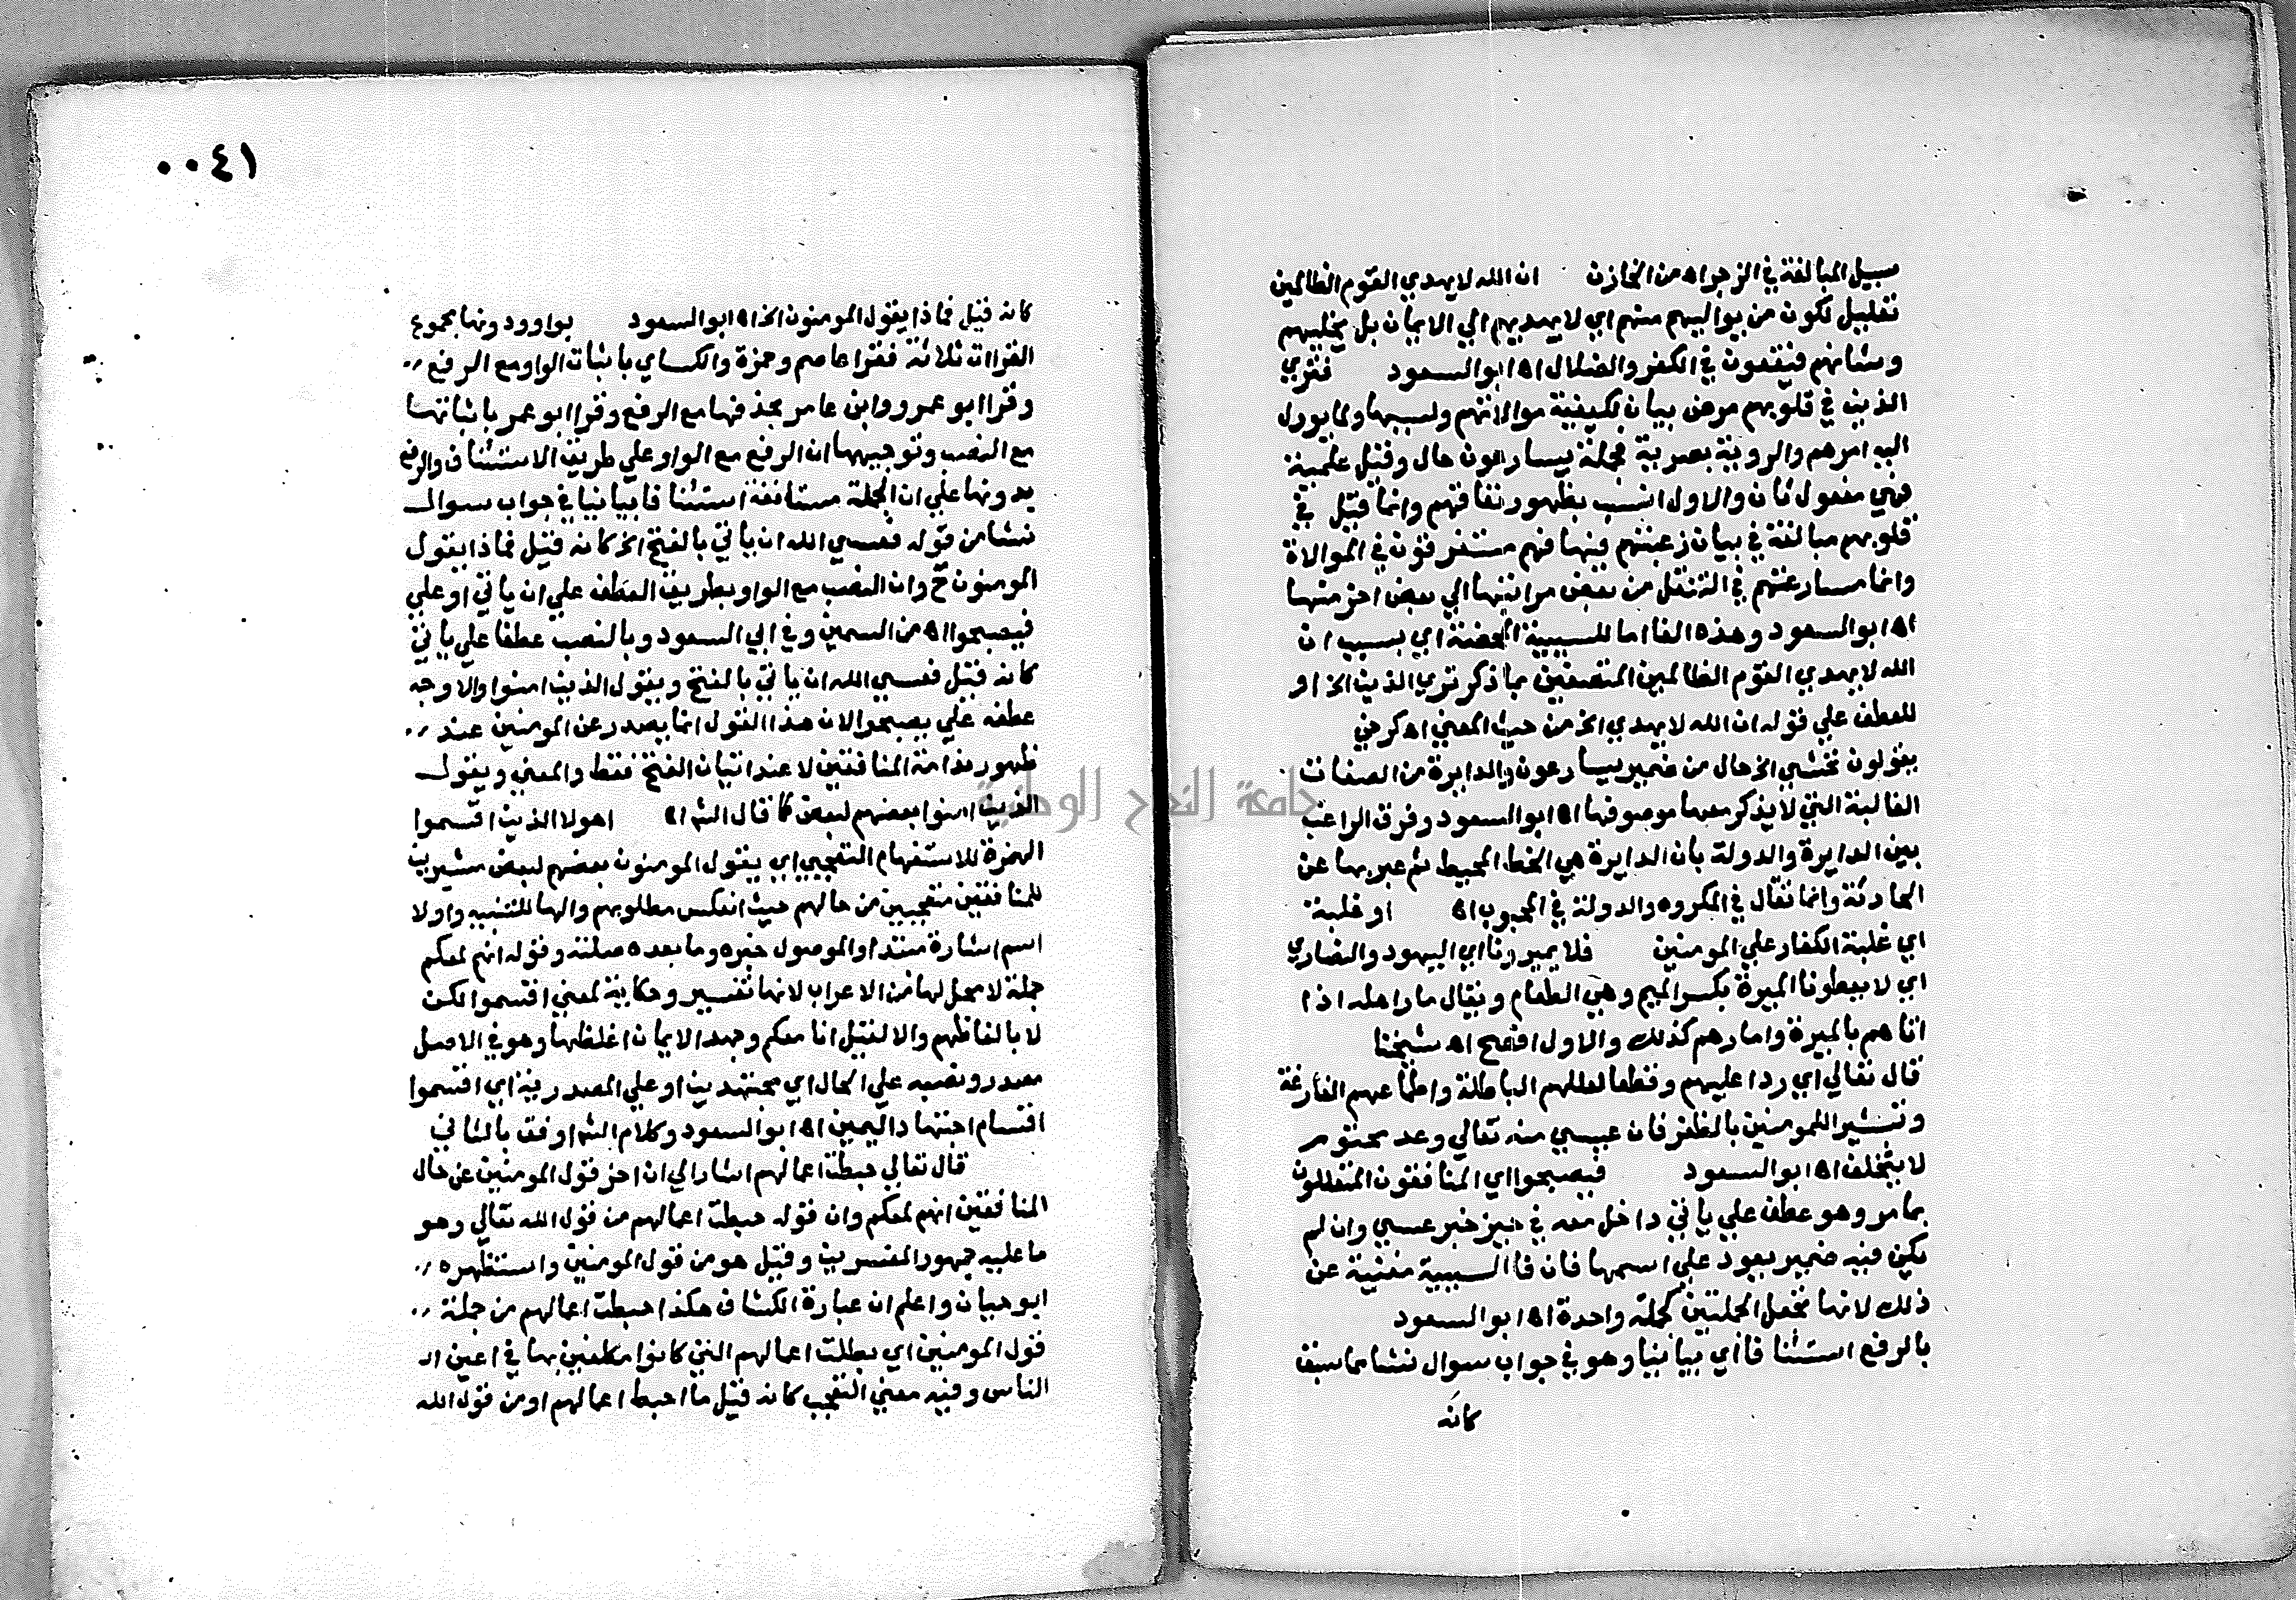 سبيل المبالغة في الزجر اه من الخازن ان الله لا يهدي القوم الظالمين
تعليل لكون من يواليهم منهم اي لا يهديهم الي الايمان بل يخليهم
وشانهم فيقعون في الكفر والضلال اه ابو السعود فتري
الذين في قلوبهم مرض بيان لكيفية موالاتهم ولسببها ولما يوول
اليه امرهم والروية بصرية فجملة يسارعون حال وقيل علمية
فهي مفعول ثان والاول انسب بظهور نفاقهم وانما قيل في
قلوبهم مبالغة في بيان رغبتهم فيها فهم مستغرقون في الموالاة
وانما مسارعتهم في التنقل من بعض مراتبها الي بعض اخر منها
اه ابو السعود وهذه الفا اما للسببية المحضة اي بسبب ان
الله لا يهدي القوم الظالمين المتصفين بما ذكر تري الذين الخ او
للعطف علي قوله ان الله لا يهدي الخ من حيث المعني اه كرخي
يقولون نخشي الخ حال من ضمير يسارعون والدايرة من الصفات
الغالبة التي لا يذكر معها موصوفها اه ابو السعود وفرق الراغب
بين الدايرة والدولة بان الدايرة هي الخط المحيط ثم عبر بها عن
الحادثة وانما تقال في المكروه والدولة في المحبوب اه او غلبة
اي غلبة الكفار علي المومنين فلا يميرونا اي اليهود والنصاري
اي لا يعطونا الميرة بكسر الميم وهي الطعام ويقال مار اهله اذا
اتاهم بالميرة وامارهم كذلك والاول افصح اه شيخنا
قال تعالي اي ردا عليهم وقطعا لعللهم الباطلة واطماعهم الفارغة
وتبشيرا للمومنين بالظفر فان عسي منه تعالي وعد محتوم
لا يتخلف اه ابو السعود فيصبحوا اي المنافقون المتعللون
بما مر وهو عطف علي ياتي داخل معه في حيز خبر عسي وان لم
يكن فيه ضمير يعود علي اسمها فان فا السببية مغنية عن
ذلك لانها تجعل الجملتين كجملة واحدة اه ابو السعود
بالرفع استئنافا اي بيانيا وهو في جواب سوال نشا مما سبق
كانه
٠٠٤١
كانه قيل فماذا يقول المومنون الخ اه ابو السعود بواو ودونها مجموع
القراات ثلاثة فقرا عاصم وحمزة والكساي باثبات الواو مع الرفع
وقرا ابو عمرو وابن عامر بحذفها مع الرفع وقرا ابو عمر باثباتها
مع النصب وتوجيهها ان الرفع مع الواو علي طريق الاستئناف والرفع
بدونها علي ان الجملة مستانفة استئنافا بيانيا في جواب سوال
نشا من قوله فعسي الله ان ياتي بالفتح الخ كانه قيل فماذا يقول
المومنون ح وان النصب مع الواو بطريق العطف علي ان ياتي او علي
فيصبحوا اه من السمين وفي ابي السعود وبالنصب عطفا علي ياتي
كانه قيل فعسي الله ان ياتي بالفتح ويقول الذين امنوا والاوجه
عطفه علي يصبحوا لان هذا القول انما يصدر عن المومنين عند
ظهور ندامة المنافقين لا عند اتيان الفتح فقط والمعني ويقول
الذين امنوا بعضهم لبعض كما قال الش اه اهولا الذين اقسموا
الهمزة للاستفهام التعجبي اي يقول المومنون بعضهم لبعض مشيرين
للمنافقين متعجبين من حالهم حيث انعكس مطلوبهم والها للتنبيه واولا
اسم اشارة مبتدا والموصول خبره وما بعده صلته وقوله انهم لمعكم
جملة لا محل لها من الاعراب لانها تفسير وحكاية لمعني اقسموا لكن
لا بالفاظهم والا لقيل انا معكم وجهد الايمان اغلظها وهو في الاصل
مصدر ونصبه علي الحال اي مجتهدين او علي المصدرية اي اقسموا
اقسام اجتهاد اليمين اه ابو السعود وكلام الش اوفق بالثاني
قال تعالي حبطت اعمالهم اشار الي ان اخر قول المومنين عن حال
المنافقين انهم لمعكم وان قوله حبطت اعمالهم من قول الله تعالي وهو
ما عليه جمهور المفسرين وقيل هو من قول المومنين واستظهره
ابو حيان واعلم ان عبارة الكشاف هكذا حبطت اعمالهم من جملة
قول المومنين اي بطلت اعمالهم التي كانوا مكلفين بها في اعين ال
الناس وفيه معني التعجب كانه قيل ما احبط اعمالهم او من قول الله
جامعة النجاح الوطنية